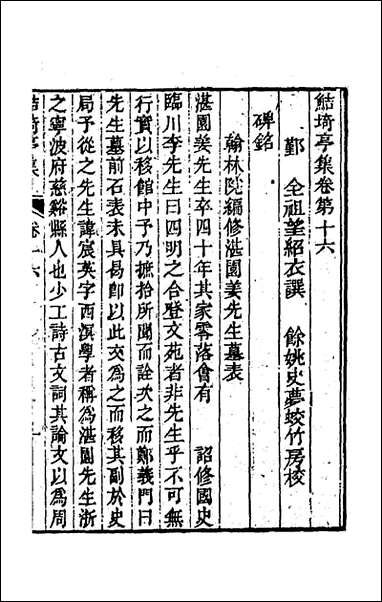 鮚埼亭集卷第十六
鄞　全祖望紹衣譔　餘姚史夢蛟竹房校
碑銘
翰林院編修湛園姜先生墓表
湛園姜先生卒四十年其家零落會有　詔修國史
臨川李先生曰四明之合登文苑者非先生乎不可無
行實以移館中予乃摭拾所聞而詮次之而鄭義門曰
先生墓前石表未具曷卽以此文為之而移其副於史
局予從之先生諱宸英字西溟學者稱為湛園先生浙
之寧波府慈谿縣人也少工詩古文詞其論文以為周
鮚埼亭集　卷十六　一